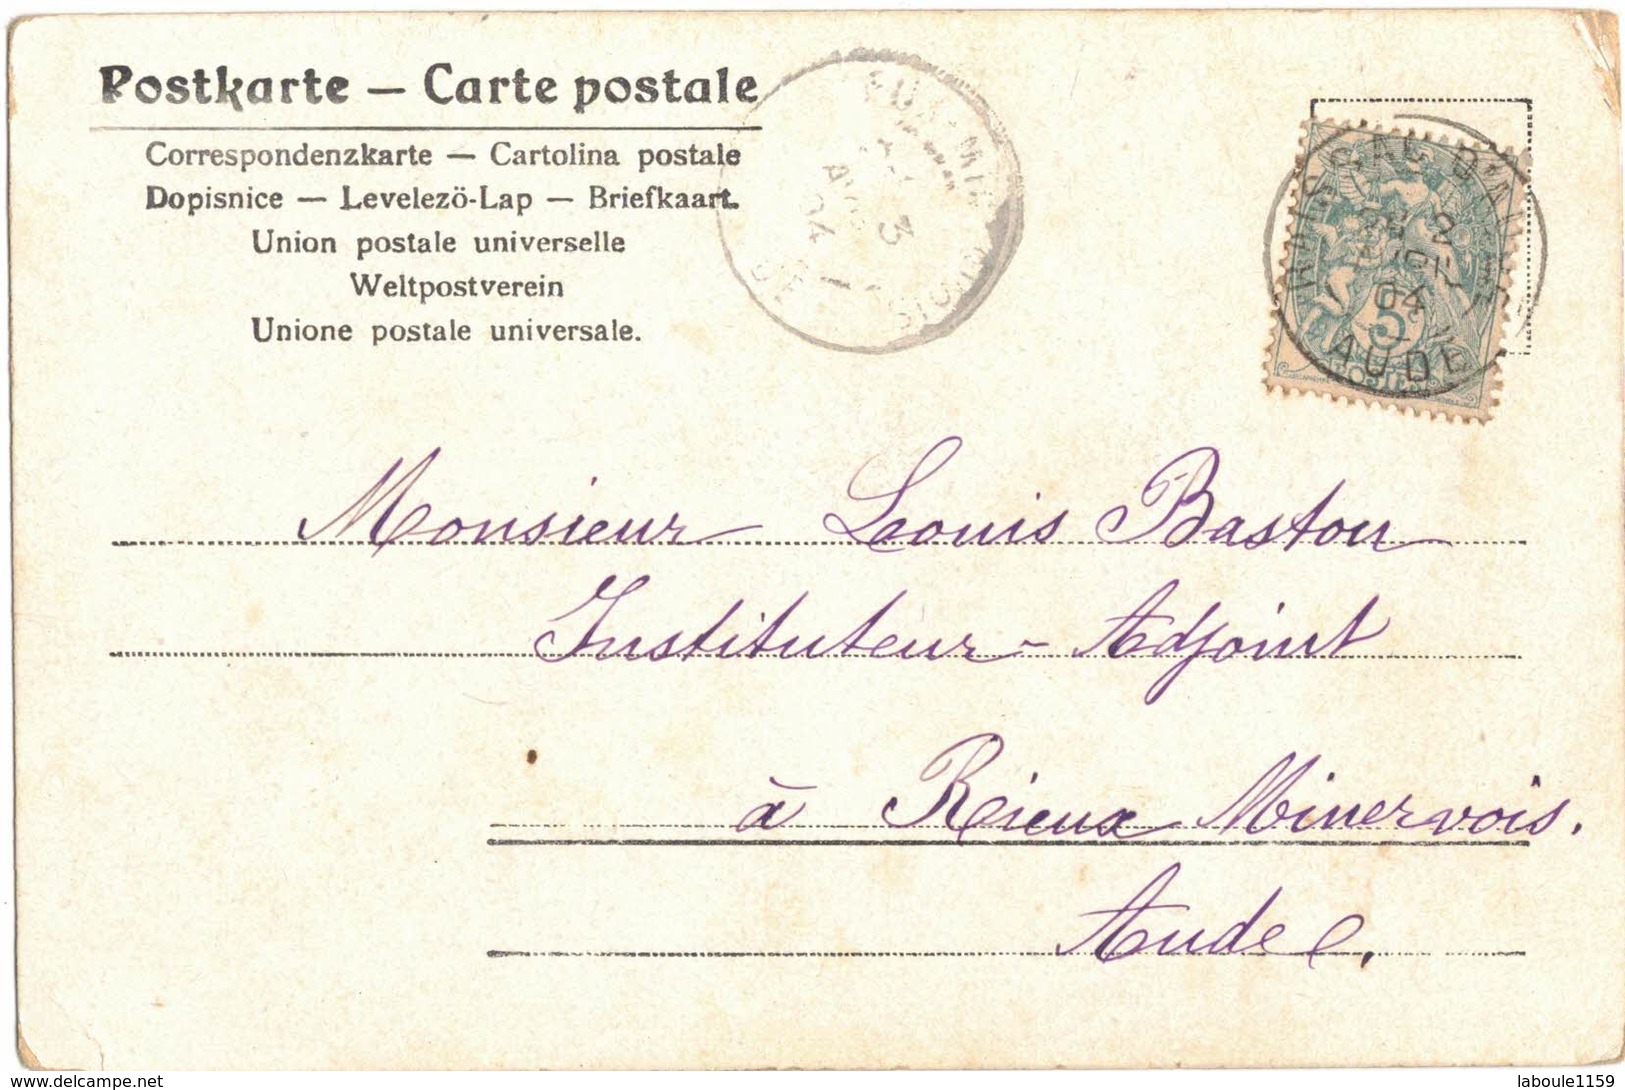 Postkarte — Carte postale
Correspondenzkarte — Cartolina postale
Dopisnice — Levelezö-Lap — Briefkaart.
Union postale universelle
Weltpostverein
Unione postale universale.
3
04
2
04
AUDE
5
POSTES
Monsieur Louis Bastou
Instituteur-Adjoint
à Rieux Minervois.
Aude.
www.delcampe.net
laboule1159